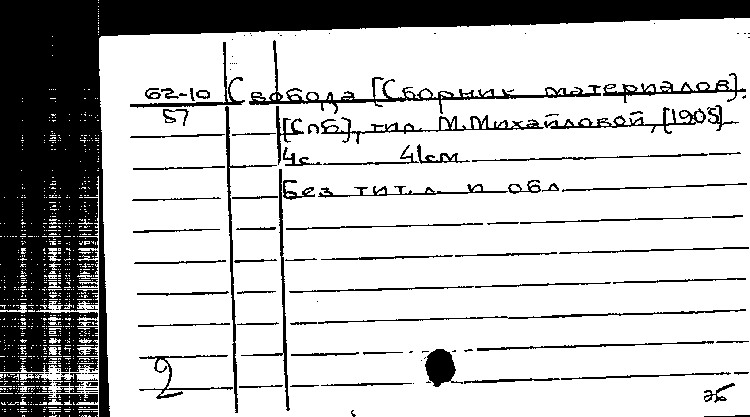 62-10 Свобода [Сборник материалов].
57 [Спб], тип. М.Михайловой, [1905]
4с. 41см
Без тит.л. и обл.
2